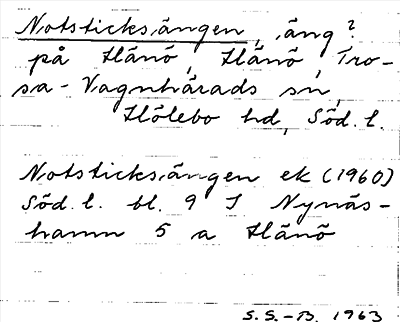 Notsticksängen, äng?
på Hänö, Hänö, Tro-
sa-Vagnhärads sn,
Hölebo hd, Söd. l.
Notsticksängen ek (1960)
Söd. l. bl. 9 I Nynäs-
hamn 5 a Hänö
S.S.-B. 1963